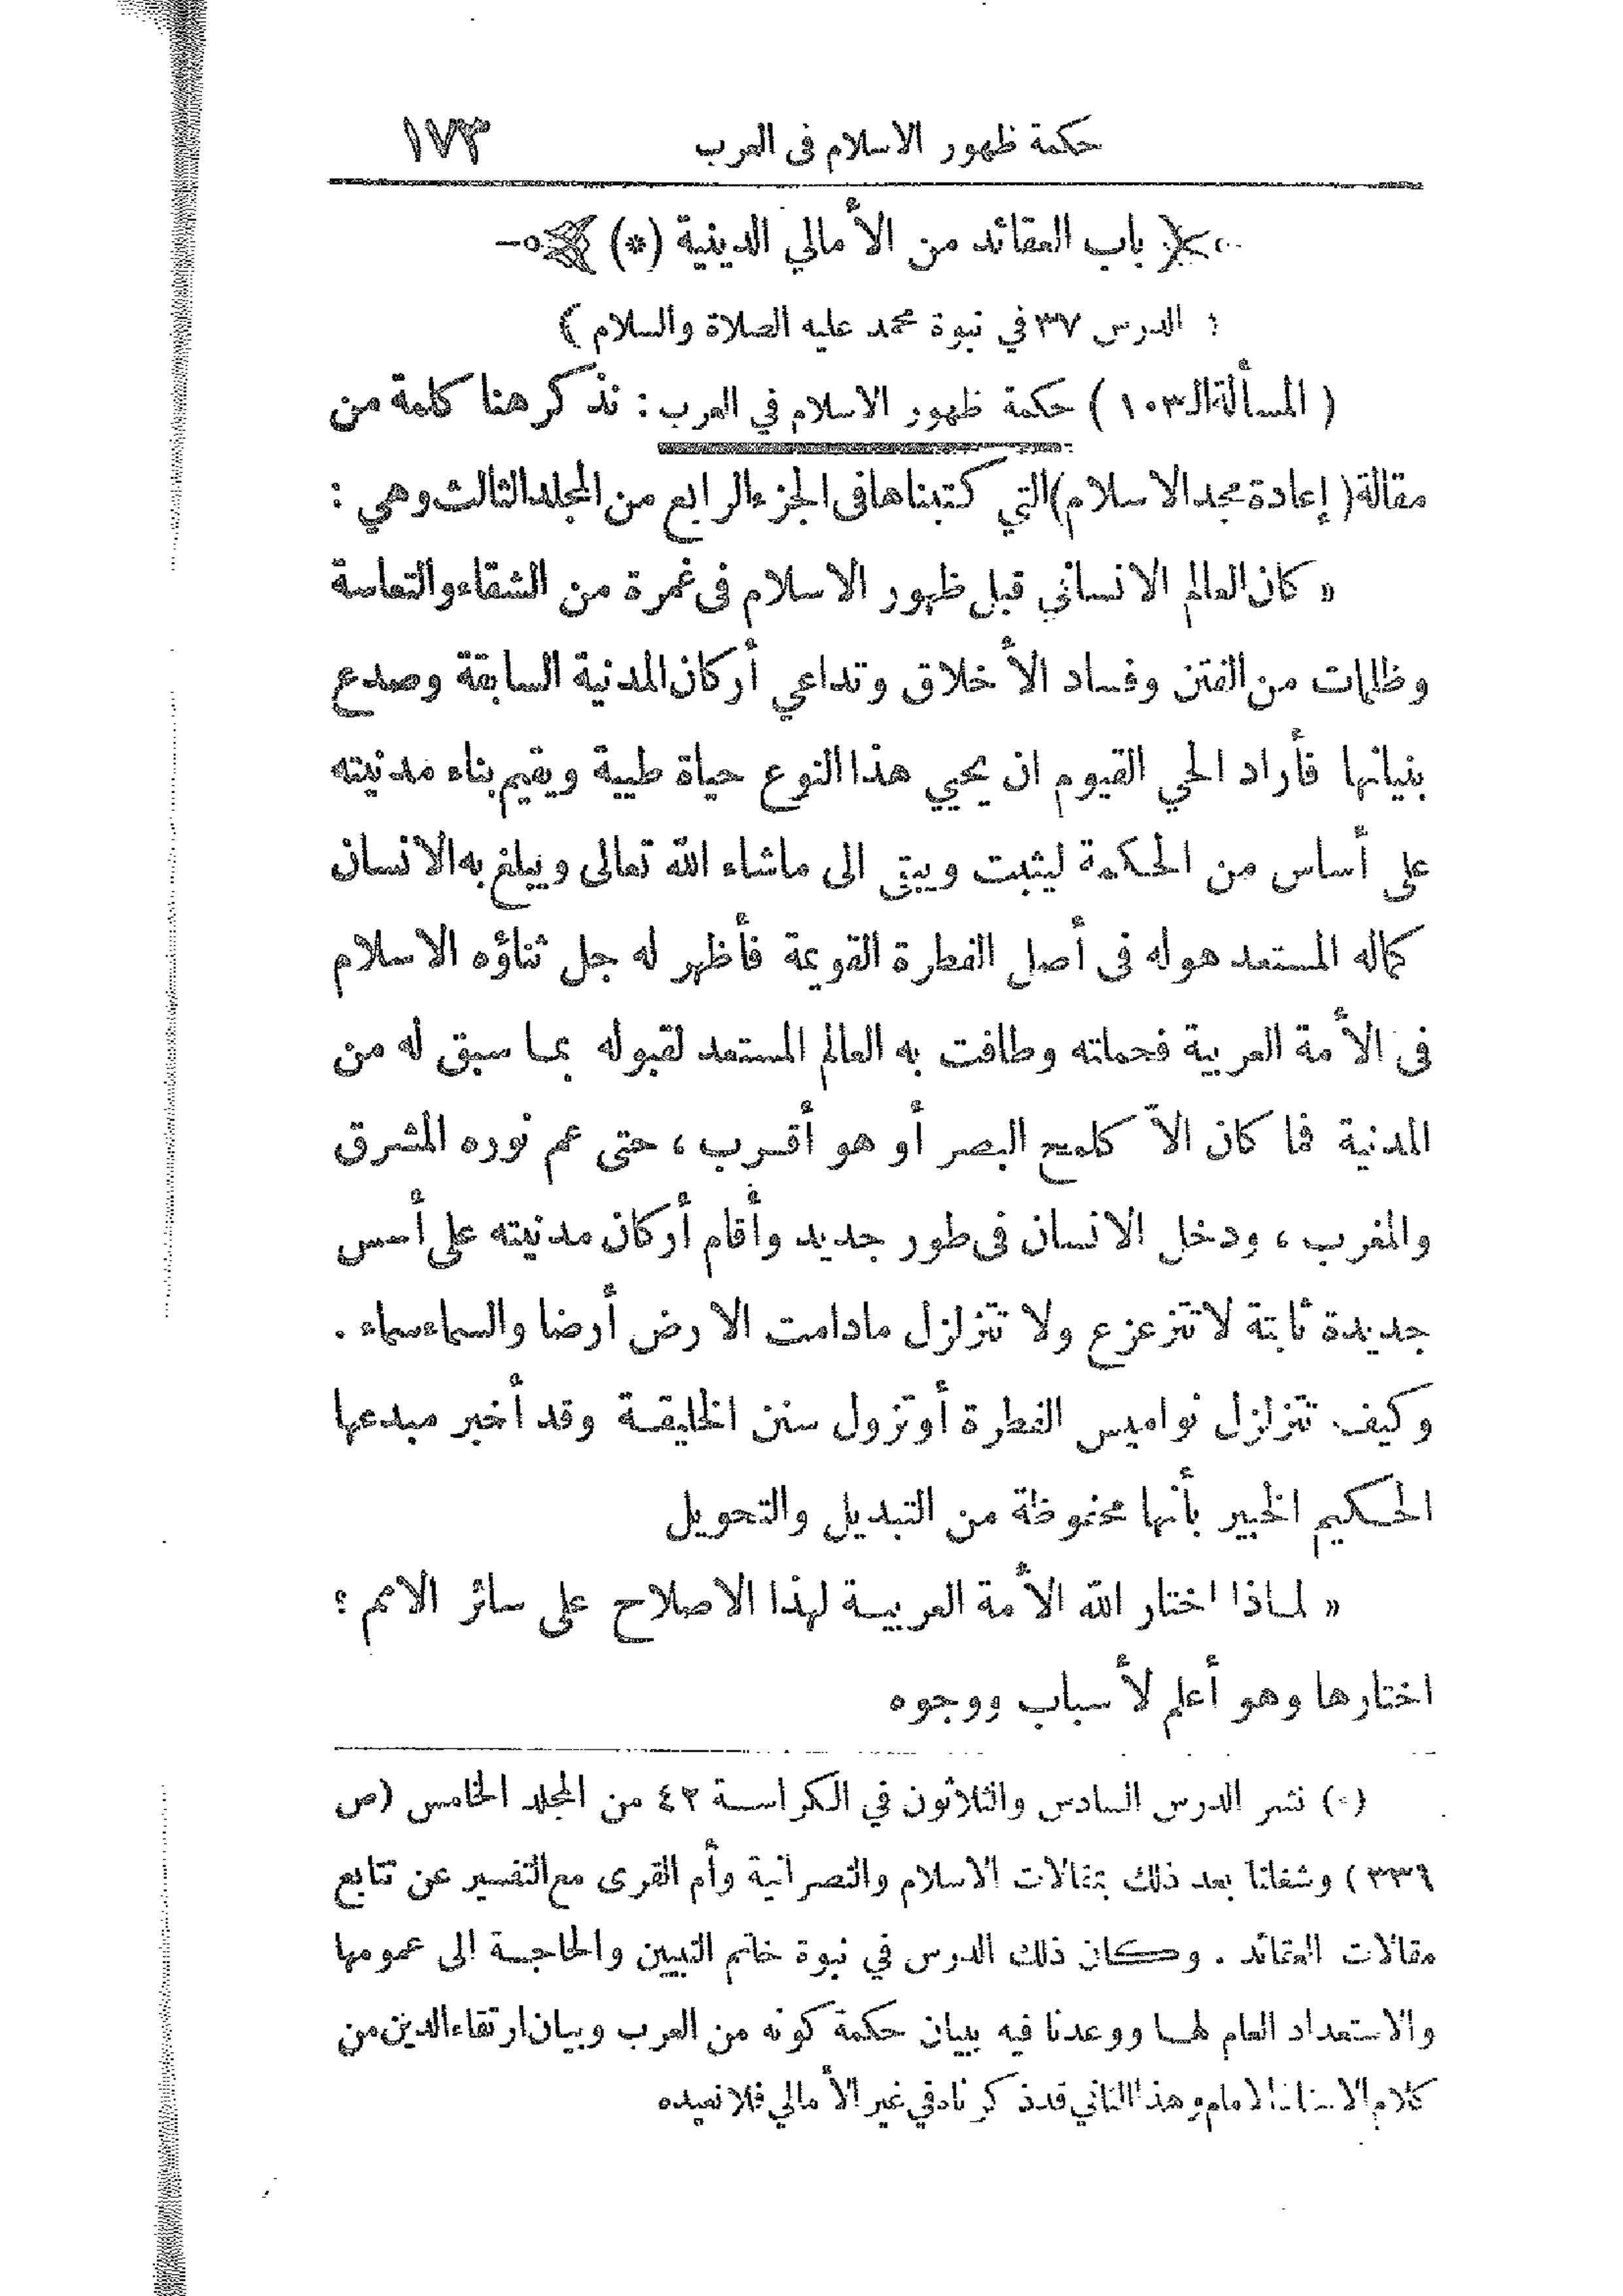 حكمة ظهور الاسلام فى العرب ١٧٣
باب العقائد من الأمالي الدينية (*)
( الدرس ٣٧ في نبوة محمد عليه الصلاة والسلام )
( المسألة الـ١٠٣ ) حكمة ظهور الاسلام في العرب : نذكر هنا كلمة من
مقالة ( إعادة مجد الاسلام ) التي كتبناها فى الجزء الرابع من المجلد الثالث وهي :
« كان العالم الانساني قبل ظهور الاسلام فى غمرة من الشقاء والتعاسة
وظلمات من الفتن وفساد الأخلاق وتداعي أركان المدنية السابقة وصدع
بنيانها فأراد الحي القيوم ان يحيي هذا النوع حياة طيبة ويقيم بناء مدنيته
على أساس من الحكمة ليثبت ويبقى الى ماشاء الله تعالى ويبلغ به الانسان
كماله المستعد هو له فى أصل الفطرة القويمة فأظهر له جل ثناؤه الاسلام
فى الأمة العربية فحملته وطافت به العالم المستعد لقبوله بما سبق له من
المدنية فما كان الاّ كلمح البصر أو هو أقرب ، حتى عم نوره المشرق
والمغرب ، ودخل الانسان فى طور جديد وأقام أركان مدنيته على أسس
جديدة ثابتة لا تتزعزع ولا تتزلزل مادامت الارض أرضا والسماء سماء .
وكيف تتزلزل نواميس الفطرة أو تزول سنن الخليقة وقد أخبر مبدعها
الحكيم الخبير بأنها محفوظة من التبديل والتحويل
« لماذا اختار الله الأمة العربية لهذا الاصلاح على سائر الامم ؟
اختارها وهو أعلم لأسباب ووجوه
(*) نشر الدرس السادس والثلاثون في الكراسة ٤٢ من المجلد الخامس (ص
٣٣٦ ) وشغلنا بعد ذلك بمقالات الاسلام والنصرانية وأم القرى مع التفسير عن تتابع
مقالات العقائد . وكان ذلك الدرس في نبوة خاتم النبيين والحاجة الى عمومها
والاستعداد العام لها ووعدنا فيه ببيان حكمة كونه من العرب وبيان ارتقاء الدين من
كلام الاستاذ الامام وهذا الثاني قد ذكرناه في غير الأمالي فلا نعيده